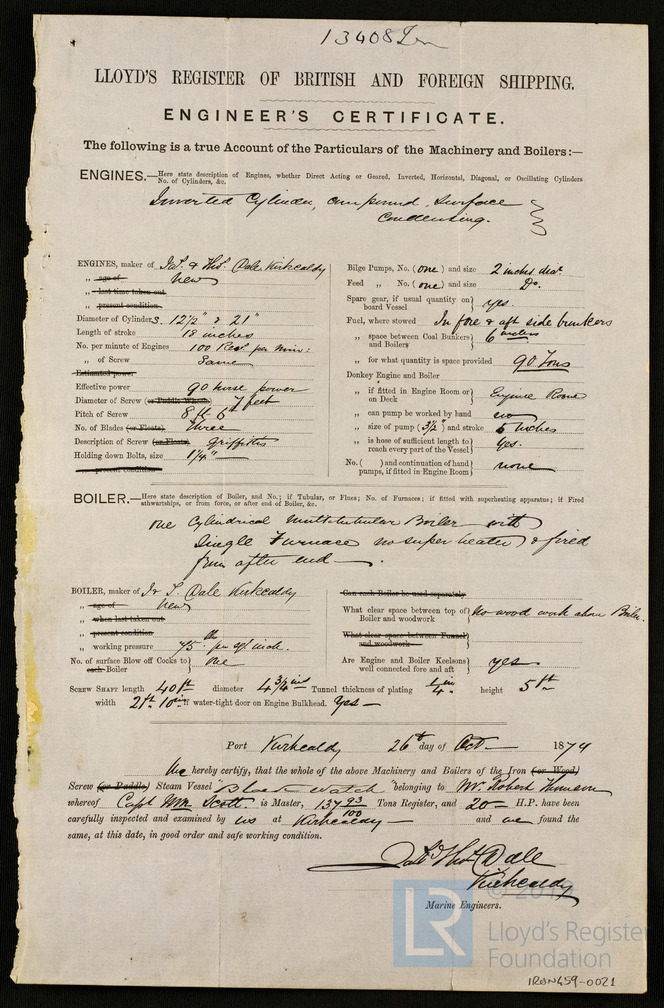 13408 Im
LLOYD'S REGISTER OF BRITISH AND FOREIGN SHIPPING.
ENGINEER'S CERTIFICATE.
The following is a true Account of the Particulars of the Machinery and Boilers:—
ENGINES.—Here state description of Engines, whether Direct Acting or Geared, Inverted, Horizontal, Diagonal, or Oscillating Cylinders
No. of Cylinders, &c.
Inverted Cylinder, compound, Surface
Condensing.
ENGINES, maker of Jas. & Thos. Dale Kirkcaldy
„ age of New
„ last time taken out
„ present condition
Diameter of Cylinders. 12 1/2" & 21"
Length of stroke 18 inches
No. per minute of Engines 100 Revs per min:
„ of Screw Same
Estimated power
Effective power 90 horse power
Diameter of Screw (or Paddle Wheels) 7 feet
Pitch of Screw 8 ft 6in
No. of Blades (or Floats) three
Description of Screw (or Floats) Griffiths
Holding down Bolts, size 1 1/4"
„ present condition
Bilge Pumps, No. (one) and size 2 inches diar
Feed „ No. (one) and size Do.
Spare gear, if usual quantity on board Vessel yes
Fuel, where stowed In fore & aft side bunkers
„ space between Coal Bunkers and Boilers 6 inches
„ for what quantity is space provided 90 Tons
Donkey Engine and Boiler
„ if fitted in Engine Room or on Deck Engine Room
„ can pump be worked by hand no
„ size of pump (3 1/2") and stroke 6 inches
„ is hose of sufficient length to reach every part of the Vessel yes.
No. ( ) and continuation of hand pumps, if fitted in Engine Room none
BOILER.—Here state description of Boiler, and No.; if Tubular, or Flues; No. of Furnaces; if fitted with superheating apparatus; if Fired
athwartships, or from force, or after end of Boiler, &c.
One Cylindrical Multitubular Boiler with
Single Furnace no super heater, & fired
from after end.
BOILER, maker of J & T. Dale Kirkcaldy
„ age of New
„ when last taken out
„ present condition
„ working pressure 75 lb per sq inch.
No. of surface Blow off Cocks to each Boiler one
Can each Boiler be used separately
What clear space between top of Boiler and woodwork No wood work above Boiler.
What clear space between Funnel and woodwork
Are Engine and Boiler Keelsons well connected fore and aft yes.
SCREW SHAFT length 40 ft diameter 4 3/4 ins Tunnel thickness of plating 1/4 in height 5 ft
width 2 ft 10 in if water-tight door on Engine Bulkhead. Yes
Port Kirkcaldy 26th day of Oct 1874
We hereby certify, that the whole of the above Machinery and Boilers of the Iron (or Wood)
Screw (or Paddle) Steam Vessel "Black Watch" belonging to Mr. Robert
whereof Capt Wm Scott is Master, 137 93/100 Tons Register, and 20 H.P. have been
carefully inspected and examined by us at Kirkcaldy and we found the
same, at this date, in good order and safe working condition.
Jas. & Thos. Dale
Kirkcaldy
Marine Engineers.
LR
Lloyd's Register
Foundation
IRON459-0021